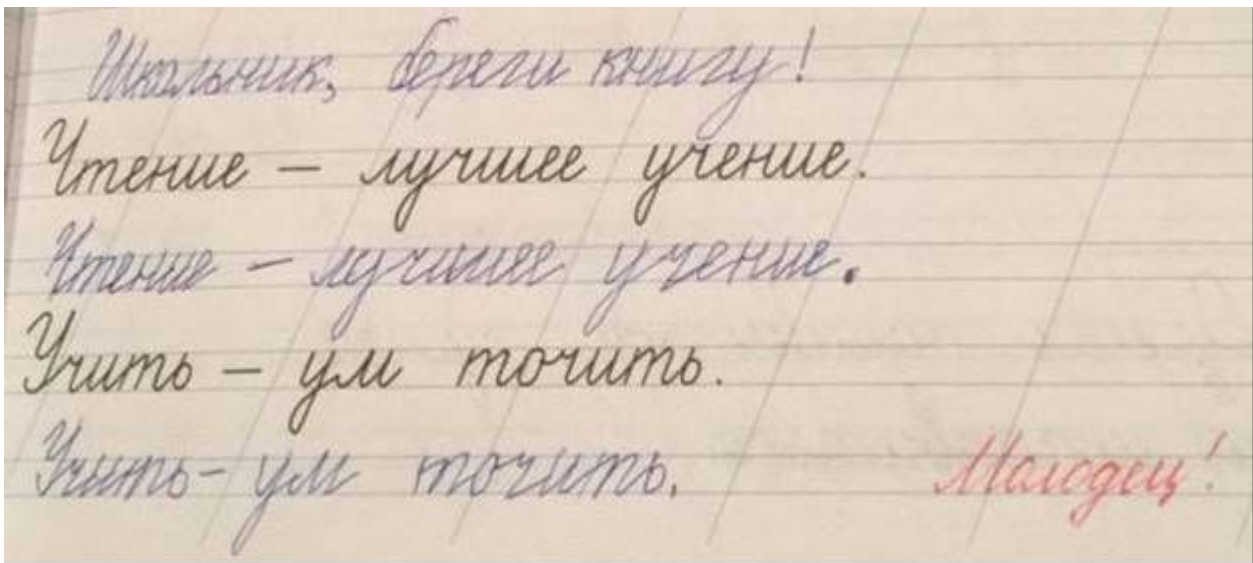 Школьник, береги книгу!
Чтение – лучшее учение.
Чтение – лучшее учение.
Учить – ум точить.
Учить – ум точить. Молодец!